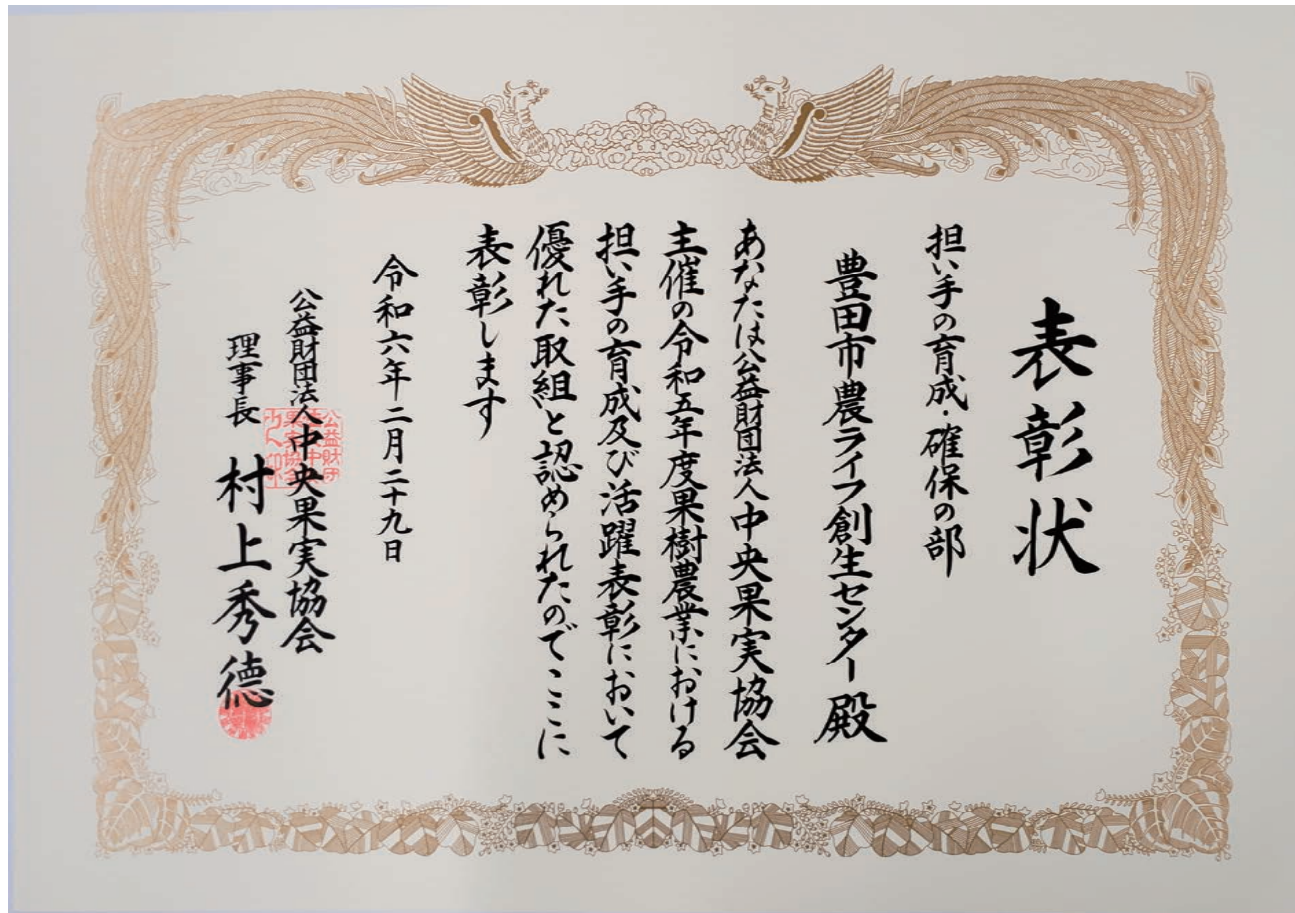 表彰状
担い手の育成・確保の部
豊田市農ライフ創生センター 殿
あなたは公益財団法人中央果実協会
主催の令和五年度果樹農業における
担い手の育成及び活躍表彰において
優れた取組と認められたのでここに
表彰します
令和六年二月二十九日
公益財団法人中央果実協会
理事長 村上秀徳